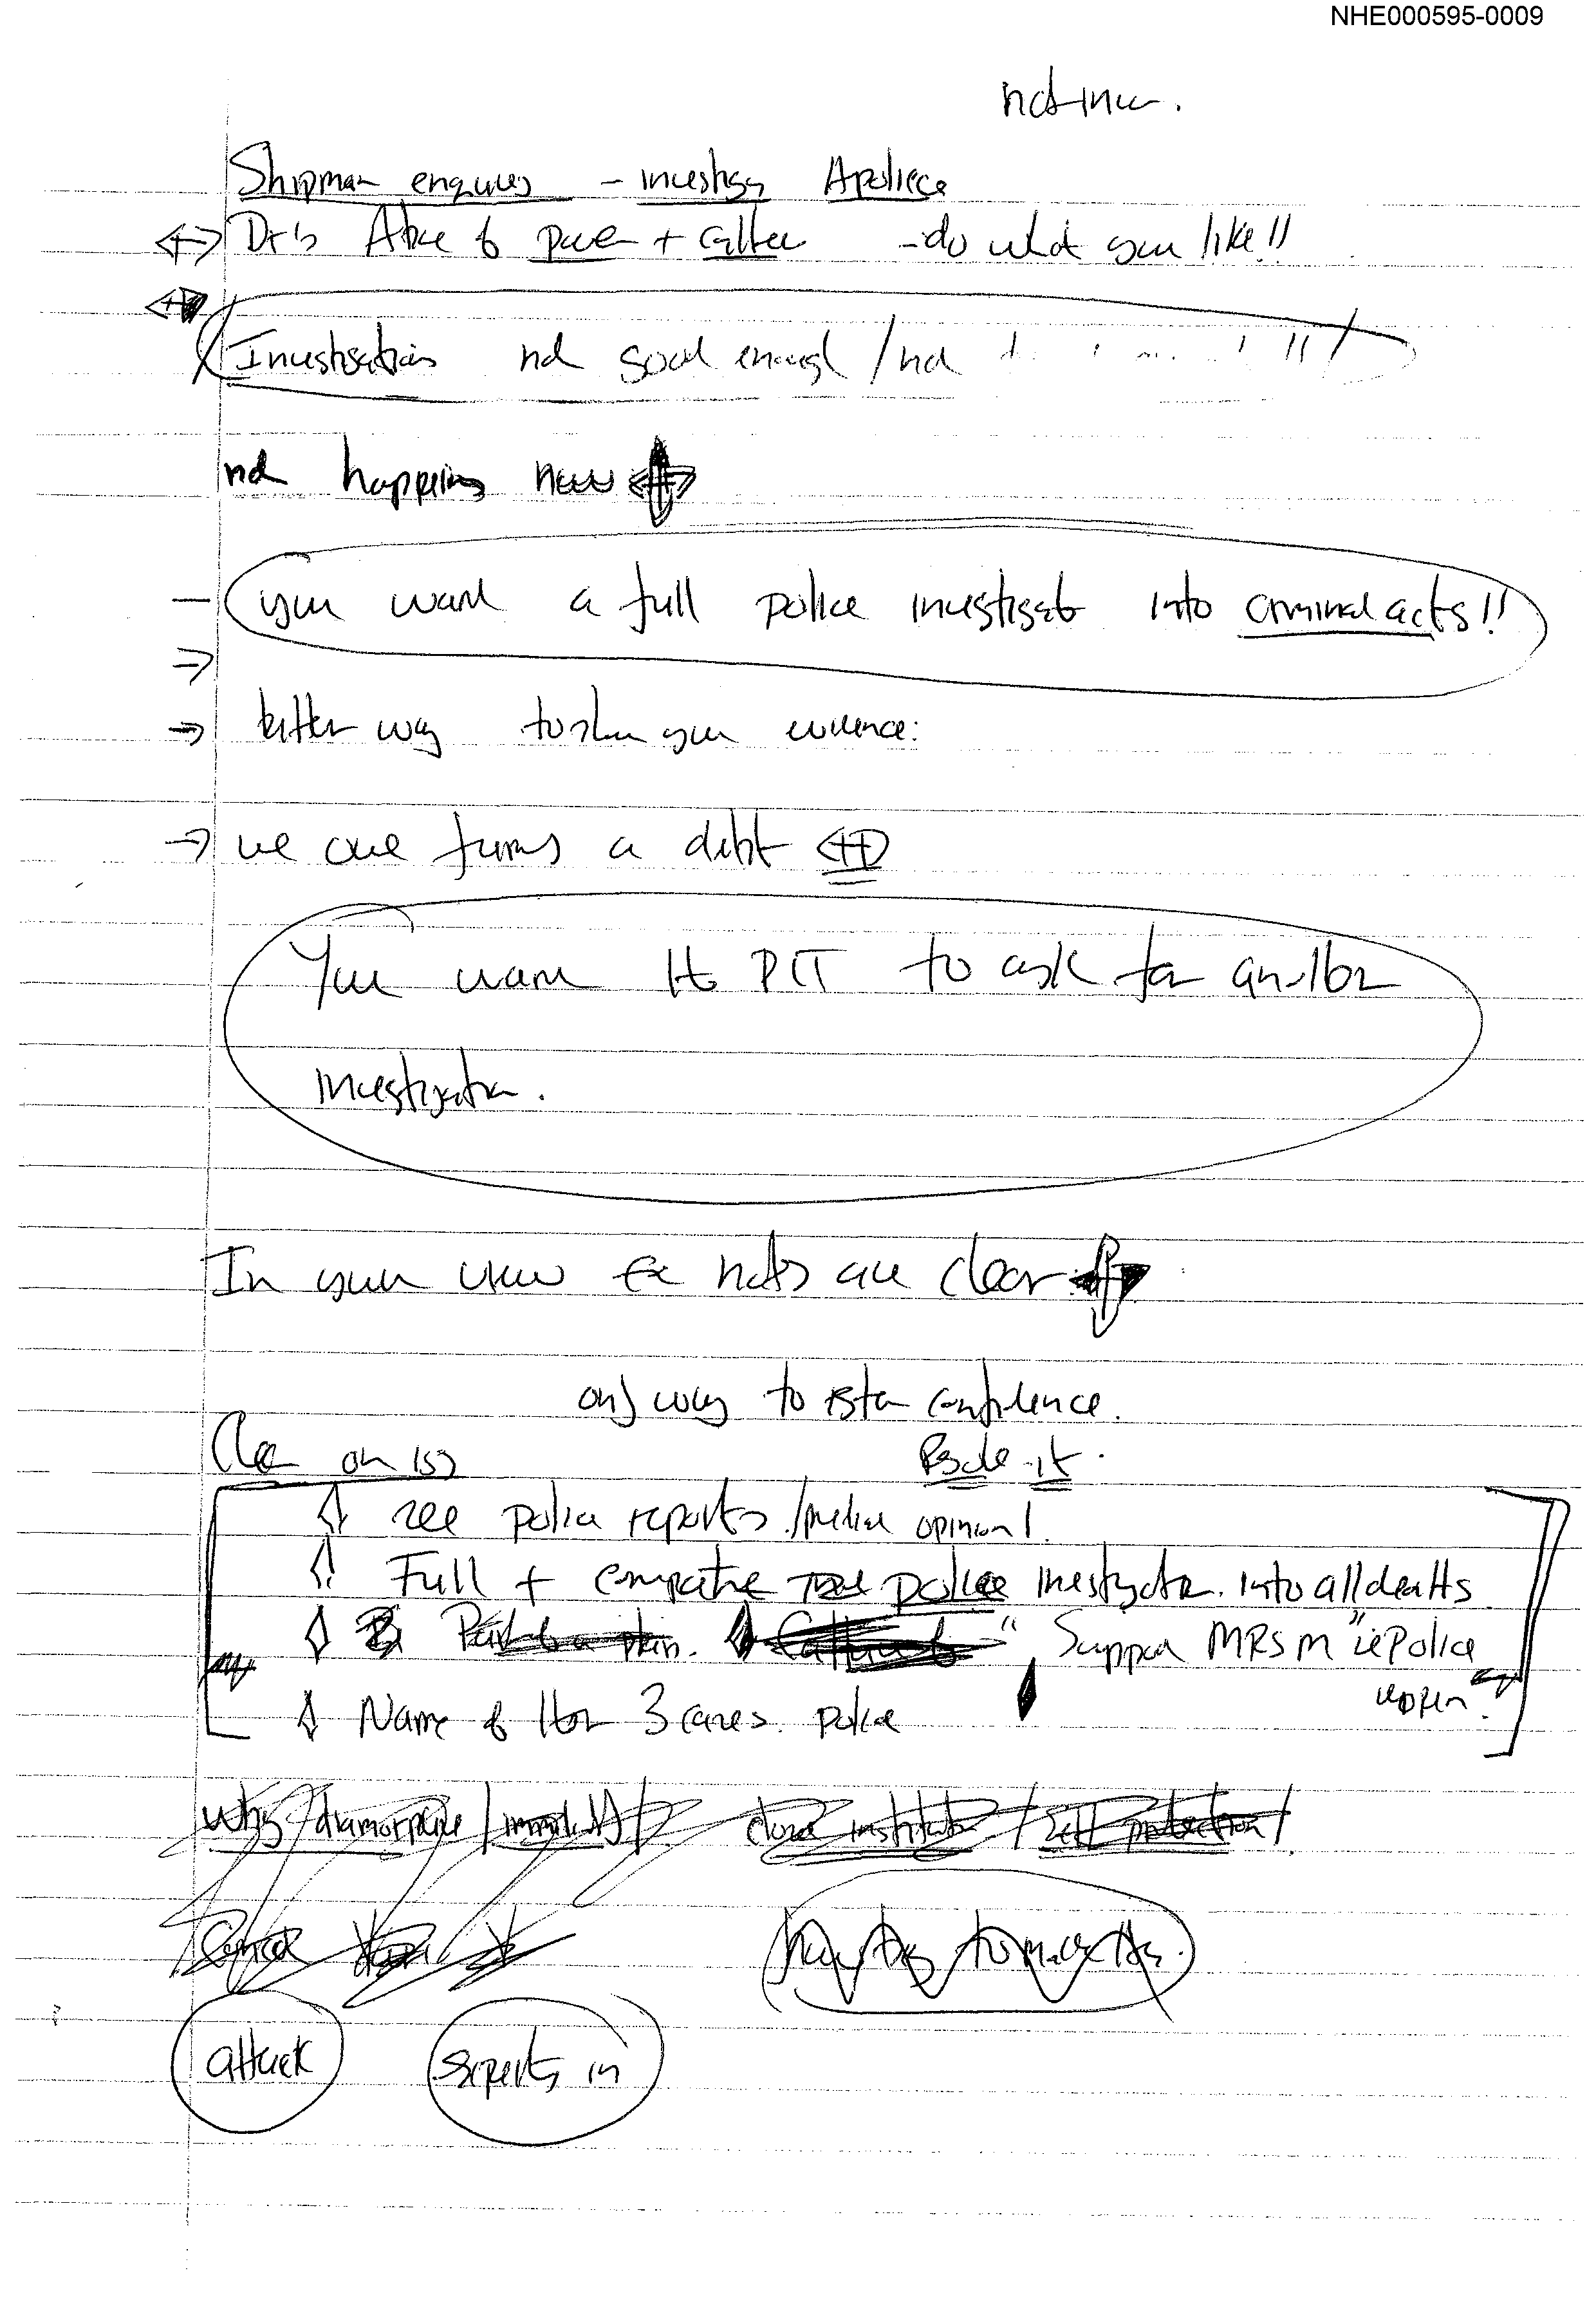 NHE000595-0009
Shipman enquires - investigy Apoliece
Dr's Abuse of power + culture - do what you like!!
Investigations not good enough / not !!
not happening now
- you want a full police investigat into criminal acts!!
→
→ better way to show you evidence:
→ we owe familys a debt
You want the PCT to ask for another
investigation.
In your view the notes are clear
only way to restor confidence.
Clear on iss
see police reports / opinion!
Full + police investigator. into all deaths
" Support MRS M" ie Police
reopen
Name of other 3 cases. police
why / diamorphine / / close institution / self protection /
attack experts in